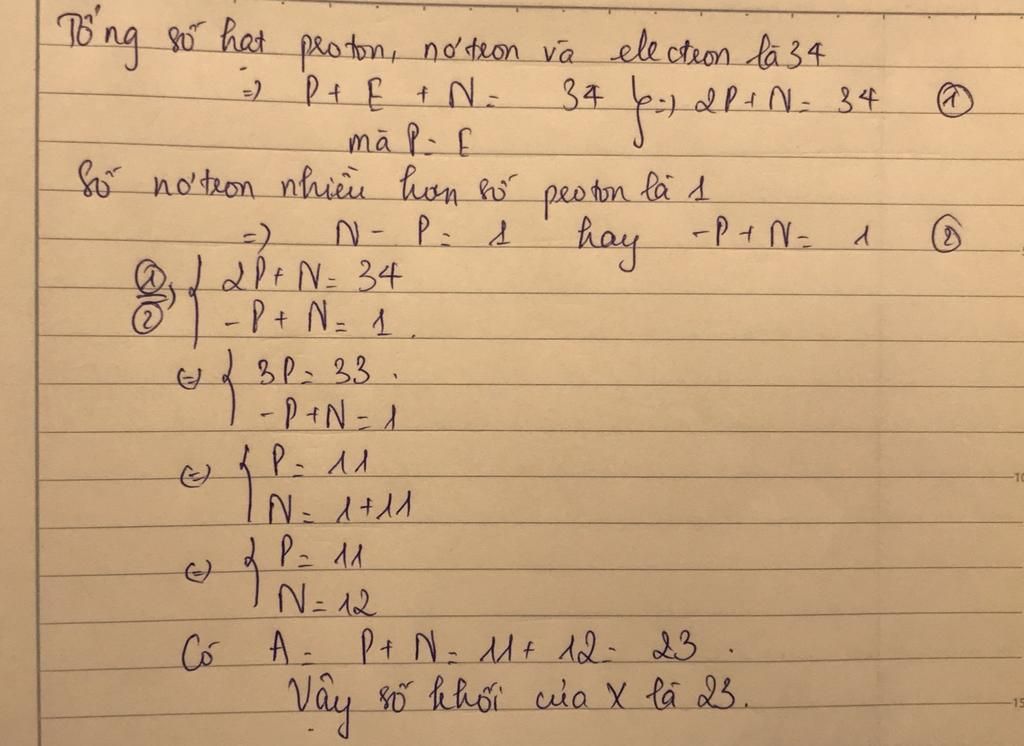 Tổng số hạt proton, nơtron và electron là 34
=) P + E + N = 34 } =) 2P + N = 34 ①
mà P = E
Số nơtron nhiều hơn số proton là 1
=) N - P = 1 hay -P + N = 1 ②
① { 2P + N = 34
② { -P + N = 1.
(=) { 3P = 33.
-P + N = 1
(=) { P = 11
N = 1 + 11
(=) { P = 11
N = 12
Có A = P + N = 11 + 12 = 23.
Vậy số khối của X là 23.
10
15